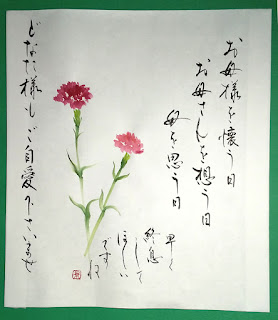 お母様を懐う日
お母さんを想う日
母を思う日
早く
終息
して
ほしい
ですね
どなた様もご自愛下さいませ